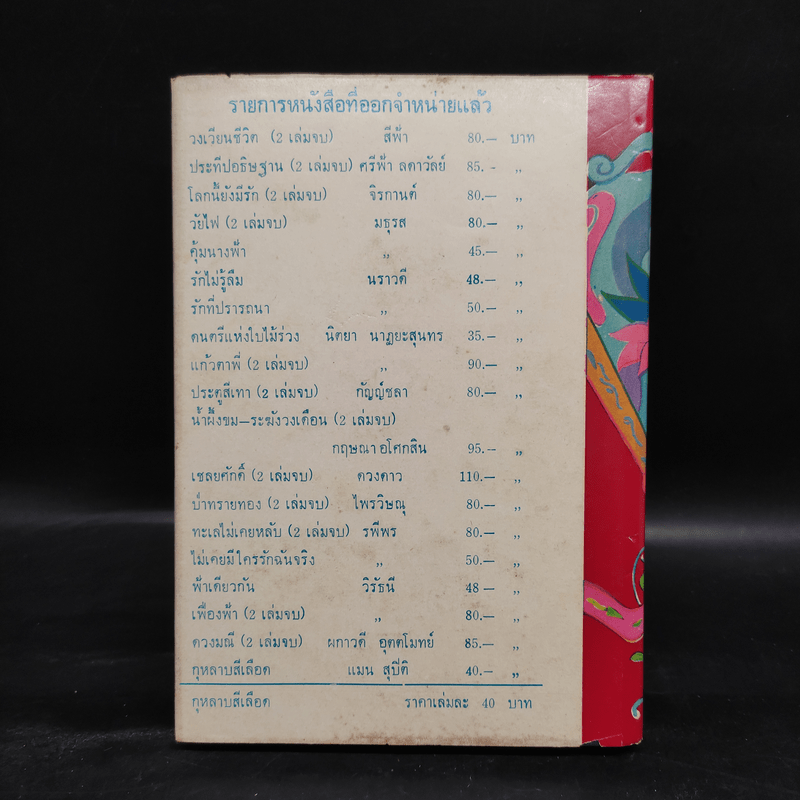 รายการหนังสือที่ออกจำหน่ายแล้ว
วงเวียนชีวิต (2 เล่มจบ) สีฟ้า 80.— บาท
ประทีปอธิษฐาน (2 เล่มจบ) ศรีฟ้า ลดาวัลย์ 85. - ,,
โลกนี้ยังมีรัก (2 เล่มจบ) จิรกานต์ 80.— ,,
วัยไฟ (2 เล่มจบ) มธุรส 80.— ,,
คุ้มนางฟ้า ,, 45.— ,,
รักไม่รู้ลืม นราวดี 48.— ,,
รักที่ปรารถนา ,, 50.— ,,
ดนตรีแห่งใบไม้ร่วง นิตยา นาฏยะสุนทร 35.— ,,
แก้วตาพี่ (2 เล่มจบ) ,, 90.— ,,
ประตูสีเทา (2 เล่มจบ) กัญญ์ชลา 80.— ,,
น้ำผึ้งขม—ระฆังวงเดือน (2 เล่มจบ)
กฤษณา อโศกสิน 95.— ,,
เชลยศักดิ์ (2 เล่มจบ) ดวงดาว 110.— ,,
ป่าทรายทอง (2 เล่มจบ) ไพรวิษณุ 80.— ,,
ทะเลไม่เคยหลับ (2 เล่มจบ) รพีพร 80.— ,,
ไม่เคยมีใครรักฉันจริง ,, 50.— ,,
ฟ้าเดียวกัน วิรัธนี 48 — ,,
เฟื่องฟ้า (2 เล่มจบ) ,, 80.— ,,
ดวงมณี (2 เล่มจบ) ผกาวดี อุตตโมทย์ 85.— ,,
กุหลาบสีเลือด แมน สุปิติ 40.— ,,
กุหลาบสีเลือด ราคาเล่มละ 40 บาท